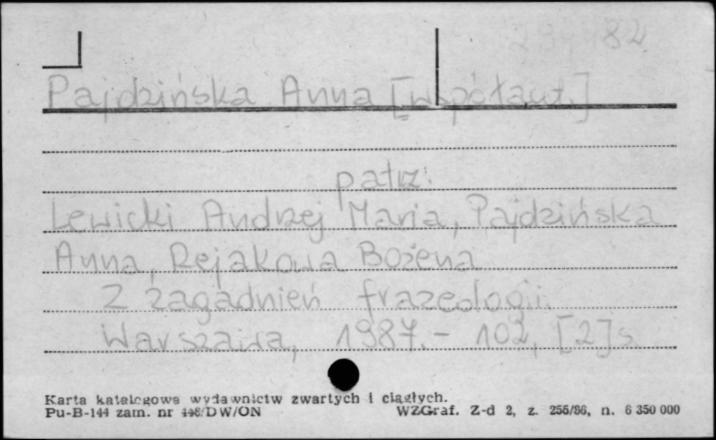 82
Pajdzińska Anna [współaut.]
patrz:
Lewicki Andrzej Maria, Pajdzińska
Anna, Rejakowa Bożena
Z zagadnień frazeologii.
Warszawa, 1987. - 102, [2] s.
Karta katalogowa wydawnictw zwartych i ciągłych.
Pu-B-144 zam. nr /DW/ON WZGraf. Z-d 2, z. 256/86, n. 6 350 000